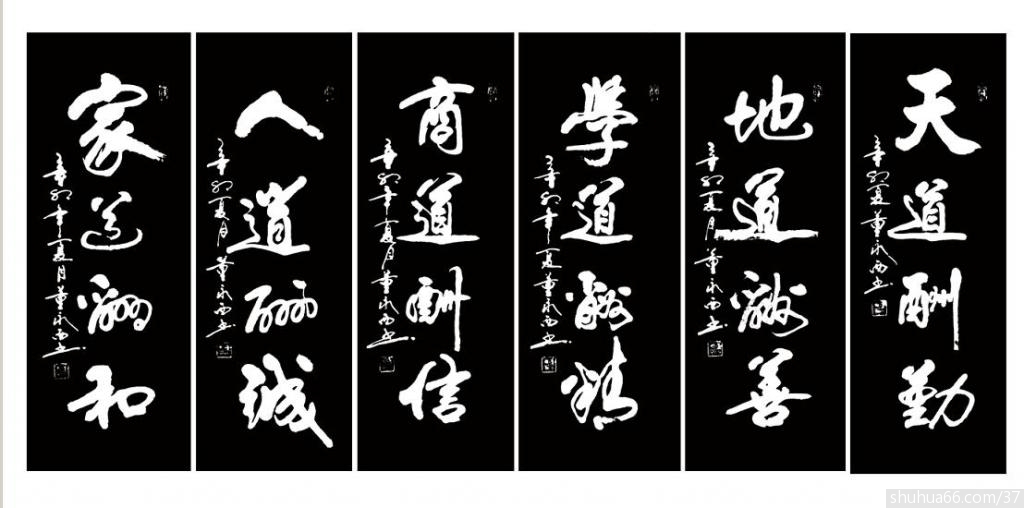 天道酬勤
辛卯夏董永西书
地道酬善
辛卯夏月董永西书
學道酬精
辛卯年夏董永西书
商道酬信
辛卯年夏月董永西书
人道酬誠
辛卯夏月董永西书
家道酬和
辛卯年夏月董永西书
shuhua66.com/37